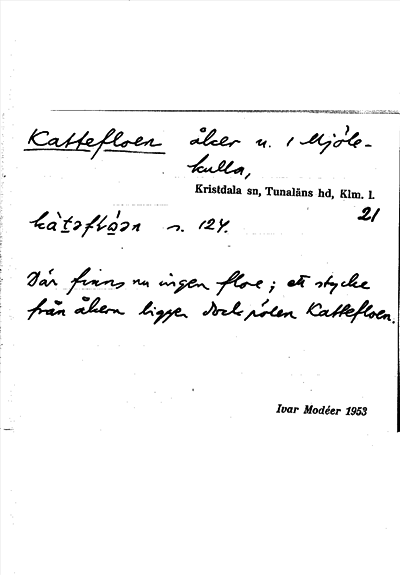 Kattefloen åker u. / Mjöle-
kulla,
Kristdala sn, Tunaläns hd, Klm. l.
21
s. 124.
Där finns nu ingen floe; ett stycke
från åkern ligger dock pölen Kattefloen.
Ivar Modéer 1953